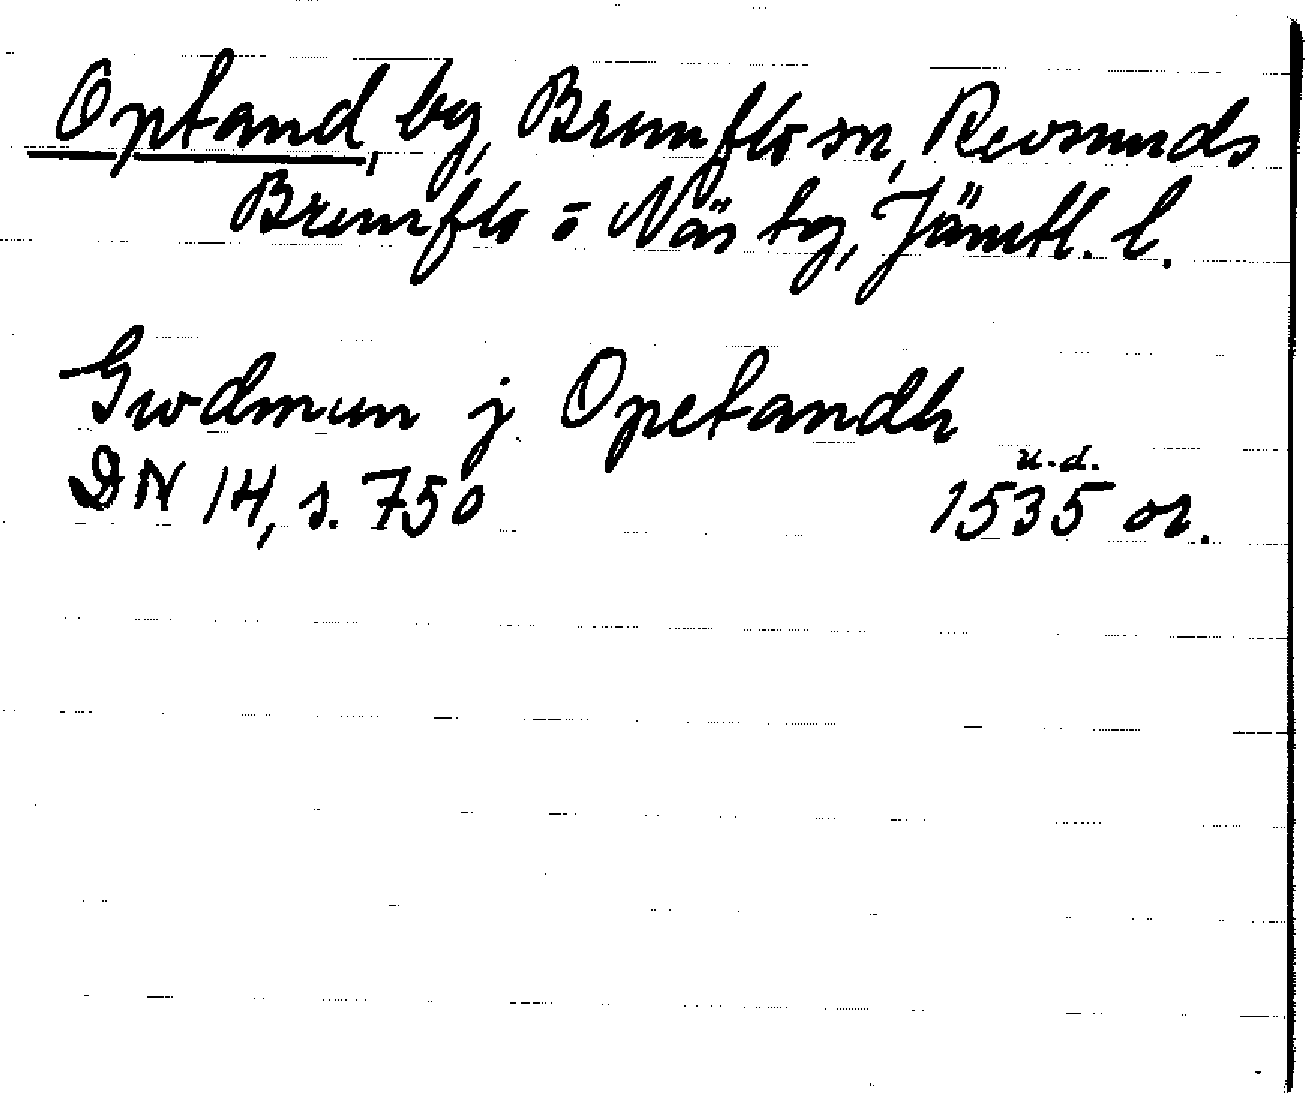 Optand, by, Brunflo sn, Revsunds
Brunflo o Näs tg, Jämtl. l.
Gwdmun j Opetandh
u.d.
DN 14, s. 750 1535 or.